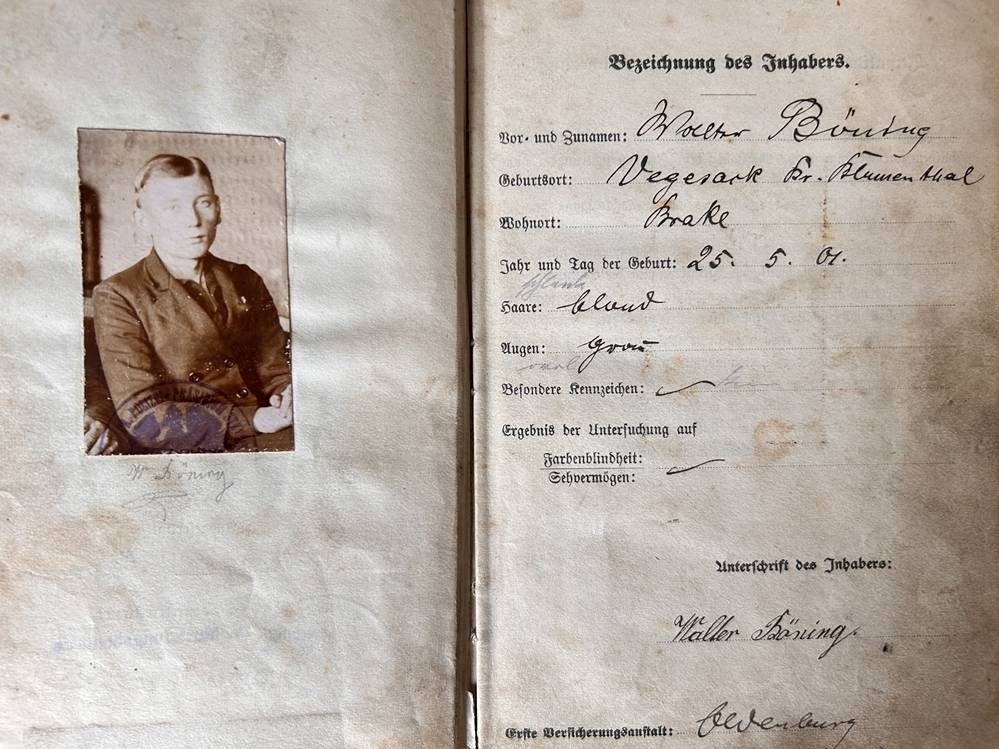 W Böning
Bezeichnung des Inhabers.
Vor- und Zunamen: Walter Böning
Geburtsort: Vegesack Kr. Blumenthal
Wohnort: Brake
Jahr und Tag der Geburt: 25. 5. 01.
schlank
Haare: blond
Augen: grau
oval
Besondere Kennzeichen:
Ergebnis der Untersuchung auf
Farbenblindheit:
Sehvermögen:
Unterschrift des Inhabers:
Walter Böning.
Erste Versicherungsanstalt: Oldenburg